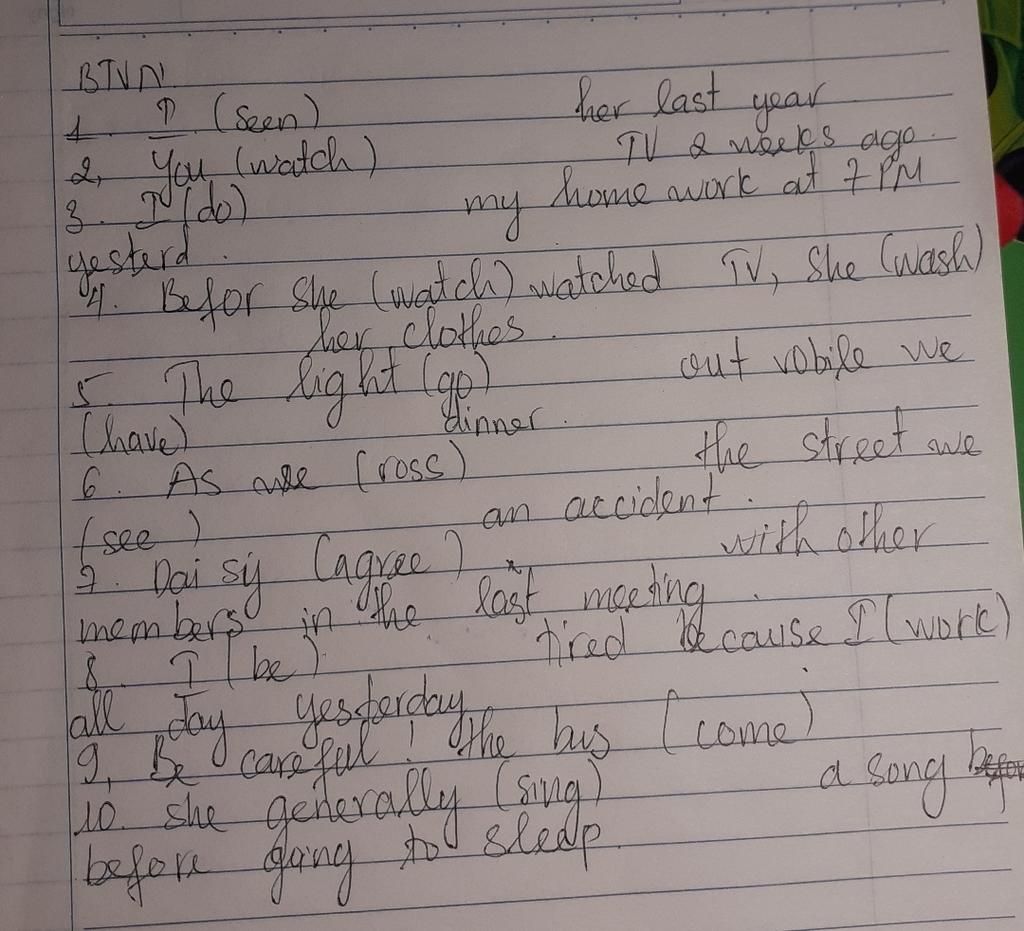 BTVN
1. I (seen) her last year
2, You (watch) TV 2 weeks ago.
3. I (do) my home work at 7 PM
yesterd.
4. Befor She (watch) watched TV, She (wash)
her clothes.
5. The light (go) out while we
(have) dinner.
6. As we (ross) the street we
(see) an accident.
7. Daisy (agree) with other
members in the last meeting.
8. I (be) tired because I (work)
all day yesterday
9, Be careful! the bus (come)
10. she generally (sing) a song
before going to sleep.